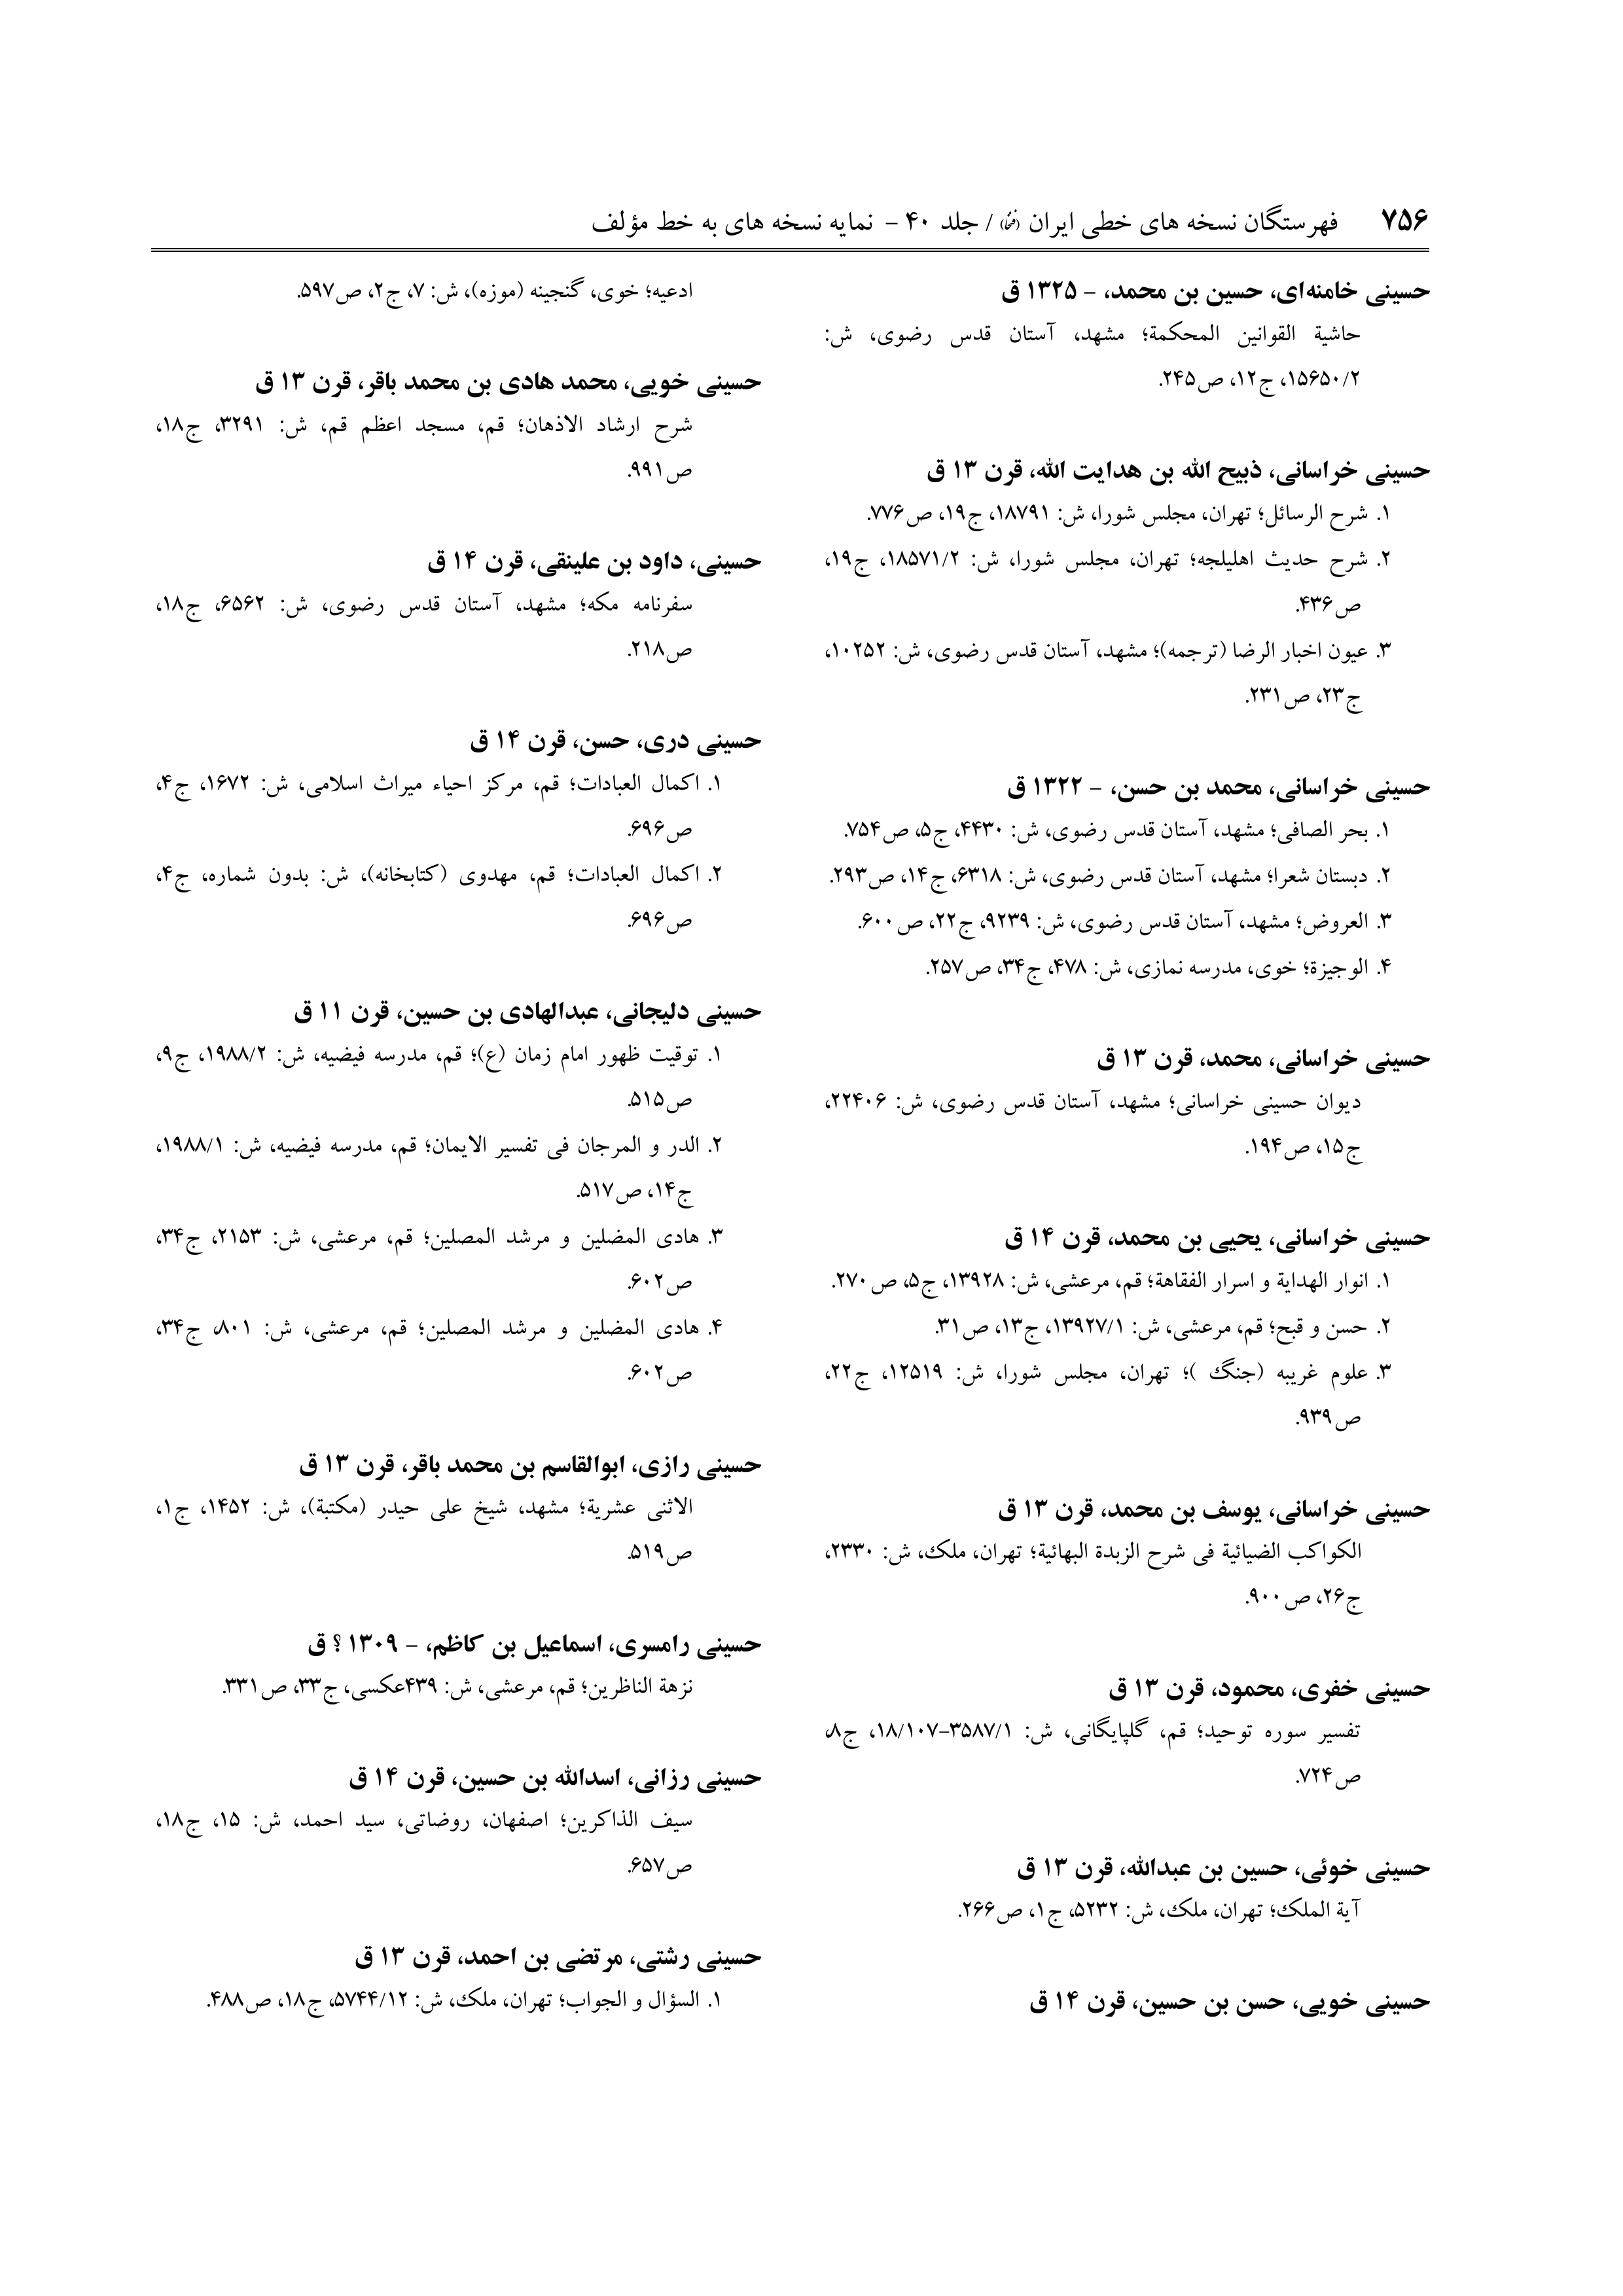 ۷۵۶ فهرستگان نسخه های خطی ایران (فنخا) / جلد ۴۰ - نمایه نسخه های به خط مؤلف
حسینی خامنه‌ای، حسین بن محمد، - ۱۳۲۵ ق
حاشیة القوانین المحکمة؛ مشهد، آستان قدس رضوی، ش:
۱۵۶۵۰/۲، ج۱۲، ص۲۴۵.
حسینی خراسانی، ذبیح الله بن هدایت الله، قرن ۱۳ ق
۱. شرح الرسائل؛ تهران، مجلس شورا، ش: ۱۸۷۹۱، ج۱۹، ص۷۷۶.
۲. شرح حدیث اهلیلجه؛ تهران، مجلس شورا، ش: ۱۸۵۷۱/۲، ج۱۹،
ص۴۳۶.
۳. عیون اخبار الرضا (ترجمه)؛ مشهد، آستان قدس رضوی، ش: ۱۰۲۵۲،
ج۲۳، ص۲۳۱.
حسینی خراسانی، محمد بن حسن، - ۱۳۲۲ ق
۱. بحر الصافی؛ مشهد، آستان قدس رضوی، ش: ۴۴۳۰، ج۵، ص۷۵۴.
۲. دبستان شعرا؛ مشهد، آستان قدس رضوی، ش: ۶۳۱۸، ج۱۴، ص۲۹۳.
۳. العروض؛ مشهد، آستان قدس رضوی، ش: ۹۲۳۹، ج۲۲، ص۶۰۰.
۴. الوجیزة؛ خوی، مدرسه نمازی، ش: ۴۷۸، ج۳۴، ص۲۵۷.
حسینی خراسانی، محمد، قرن ۱۳ ق
دیوان حسینی خراسانی؛ مشهد، آستان قدس رضوی، ش: ۲۲۴۰۶،
ج۱۵، ص۱۹۴.
حسینی خراسانی، یحیی بن محمد، قرن ۱۴ ق
۱. انوار الهدایة و اسرار الفقاهة؛ قم، مرعشی، ش: ۱۳۹۲۸، ج۵، ص۲۷۰.
۲. حسن و قبح؛ قم، مرعشی، ش: ۱۳۹۲۷/۱، ج۱۳، ص۳۱.
۳. علوم غریبه (جنگ )؛ تهران، مجلس شورا، ش: ۱۲۵۱۹، ج۲۲،
ص۹۳۹.
حسینی خراسانی، یوسف بن محمد، قرن ۱۳ ق
الکواکب الضیائیة فی شرح الزبدة البهائیة؛ تهران، ملک، ش: ۲۳۳۰،
ج۲۶، ص۹۰۰.
حسینی خفری، محمود، قرن ۱۳ ق
تفسیر سوره توحید؛ قم، گلپایگانی، ش: ۳۵۸۷/۱-۱۸/۱۰۷، ج۸،
ص۷۲۴.
حسینی خوئی، حسین بن عبدالله، قرن ۱۳ ق
آیة الملک؛ تهران، ملک، ش: ۵۲۳۲، ج۱، ص۲۶۶.
حسینی خویی، حسن بن حسین، قرن ۱۴ ق
ادعیه؛ خوی، گنجینه (موزه)، ش: ۷، ج۲، ص۵۹۷.
حسینی خویی، محمد هادی بن محمد باقر، قرن ۱۳ ق
شرح ارشاد الاذهان؛ قم، مسجد اعظم قم، ش: ۳۲۹۱، ج۱۸،
ص۹۹۱.
حسینی، داود بن علینقی، قرن ۱۴ ق
سفرنامه مکه؛ مشهد، آستان قدس رضوی، ش: ۶۵۶۲، ج۱۸،
ص۲۱۸.
حسینی دری، حسن، قرن ۱۴ ق
۱. اکمال العبادات؛ قم، مرکز احیاء میراث اسلامی، ش: ۱۶۷۲، ج۴،
ص۶۹۶.
۲. اکمال العبادات؛ قم، مهدوی (کتابخانه)، ش: بدون شماره، ج۴،
ص۶۹۶.
حسینی دلیجانی، عبدالهادی بن حسین، قرن ۱۱ ق
۱. توقیت ظهور امام زمان (ع)؛ قم، مدرسه فیضیه، ش: ۱۹۸۸/۲، ج۹،
ص۵۱۵.
۲. الدر و المرجان فی تفسیر الایمان؛ قم، مدرسه فیضیه، ش: ۱۹۸۸/۱،
ج۱۴، ص۵۱۷.
۳. هادی المضلین و مرشد المصلین؛ قم، مرعشی، ش: ۲۱۵۳، ج۳۴،
ص۶۰۲.
۴. هادی المضلین و مرشد المصلین؛ قم، مرعشی، ش: ۸۰۱، ج۳۴،
ص۶۰۲.
حسینی رازی، ابوالقاسم بن محمد باقر، قرن ۱۳ ق
الاثنی عشریة؛ مشهد، شیخ علی حیدر (مکتبة)، ش: ۱۴۵۲، ج۱،
ص۵۱۹.
حسینی رامسری، اسماعیل بن کاظم، - ۱۳۰۹ ؟ ق
نزهة الناظرین؛ قم، مرعشی، ش: ۴۳۹عکسی، ج۳۳، ص۳۳۱.
حسینی رزانی، اسدالله بن حسین، قرن ۱۴ ق
سیف الذاکرین؛ اصفهان، روضاتی، سید احمد، ش: ۱۵، ج۱۸،
ص۶۵۷.
حسینی رشتی، مرتضی بن احمد، قرن ۱۳ ق
۱. السؤال و الجواب؛ تهران، ملک، ش: ۵۷۴۴/۱۲، ج۱۸، ص۴۸۸.